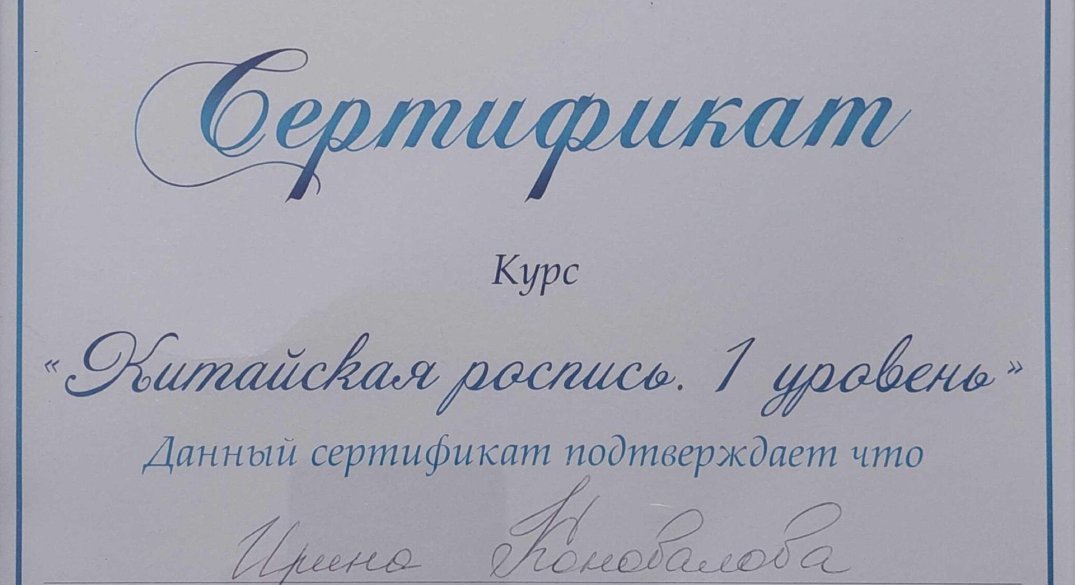 Сертификат
Курс
«Китайская роспись. 1 уровень»
Данный сертификат подтверждает что
Ирина Коновалова